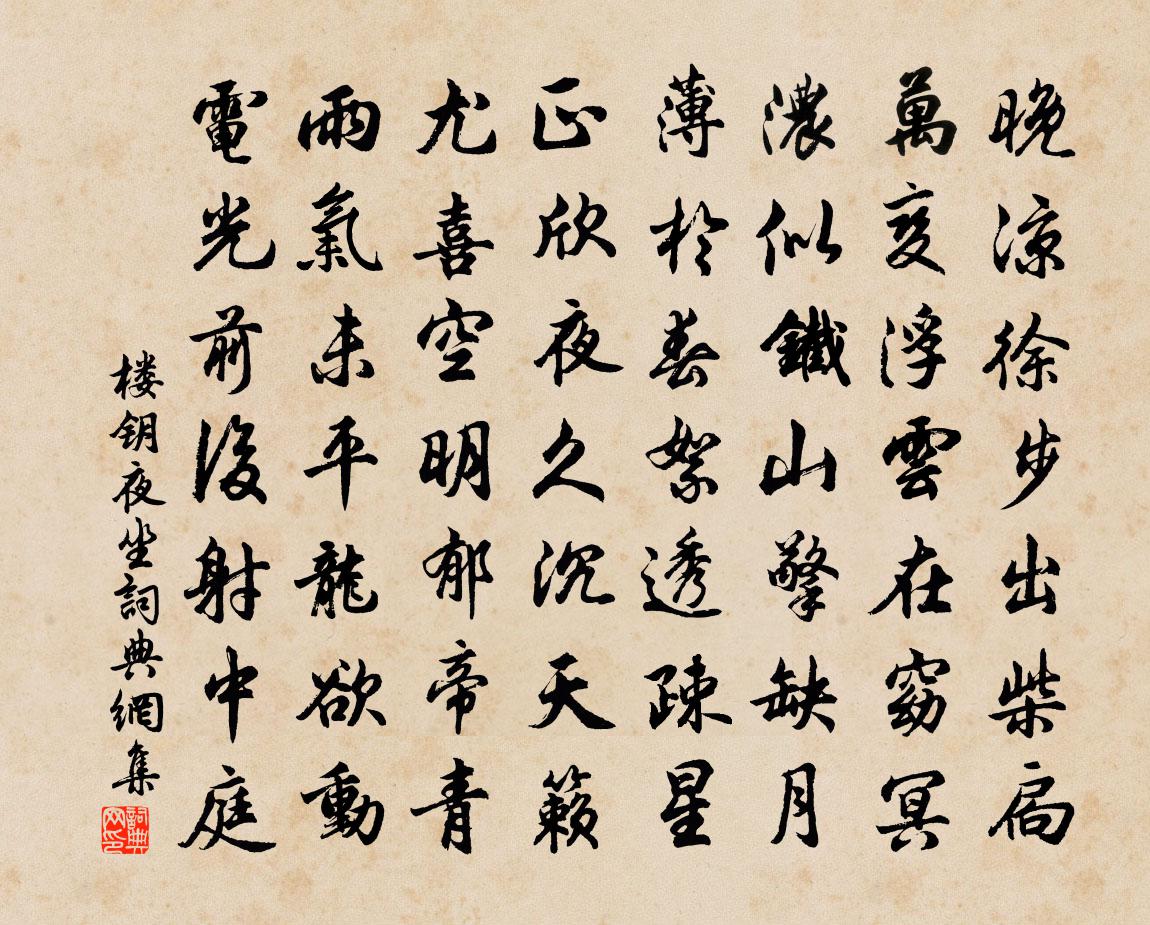 晚涼徐步出柴扃
萬变浮雲在窈冥
濃似鐵山擎缺月
薄於春絮透疎星
正欣夜久沉天籟
尤喜空明郁帝青
雨氣未平龍欲動
電光前後射中庭
楼钥夜坐詞典網集
詞典网印